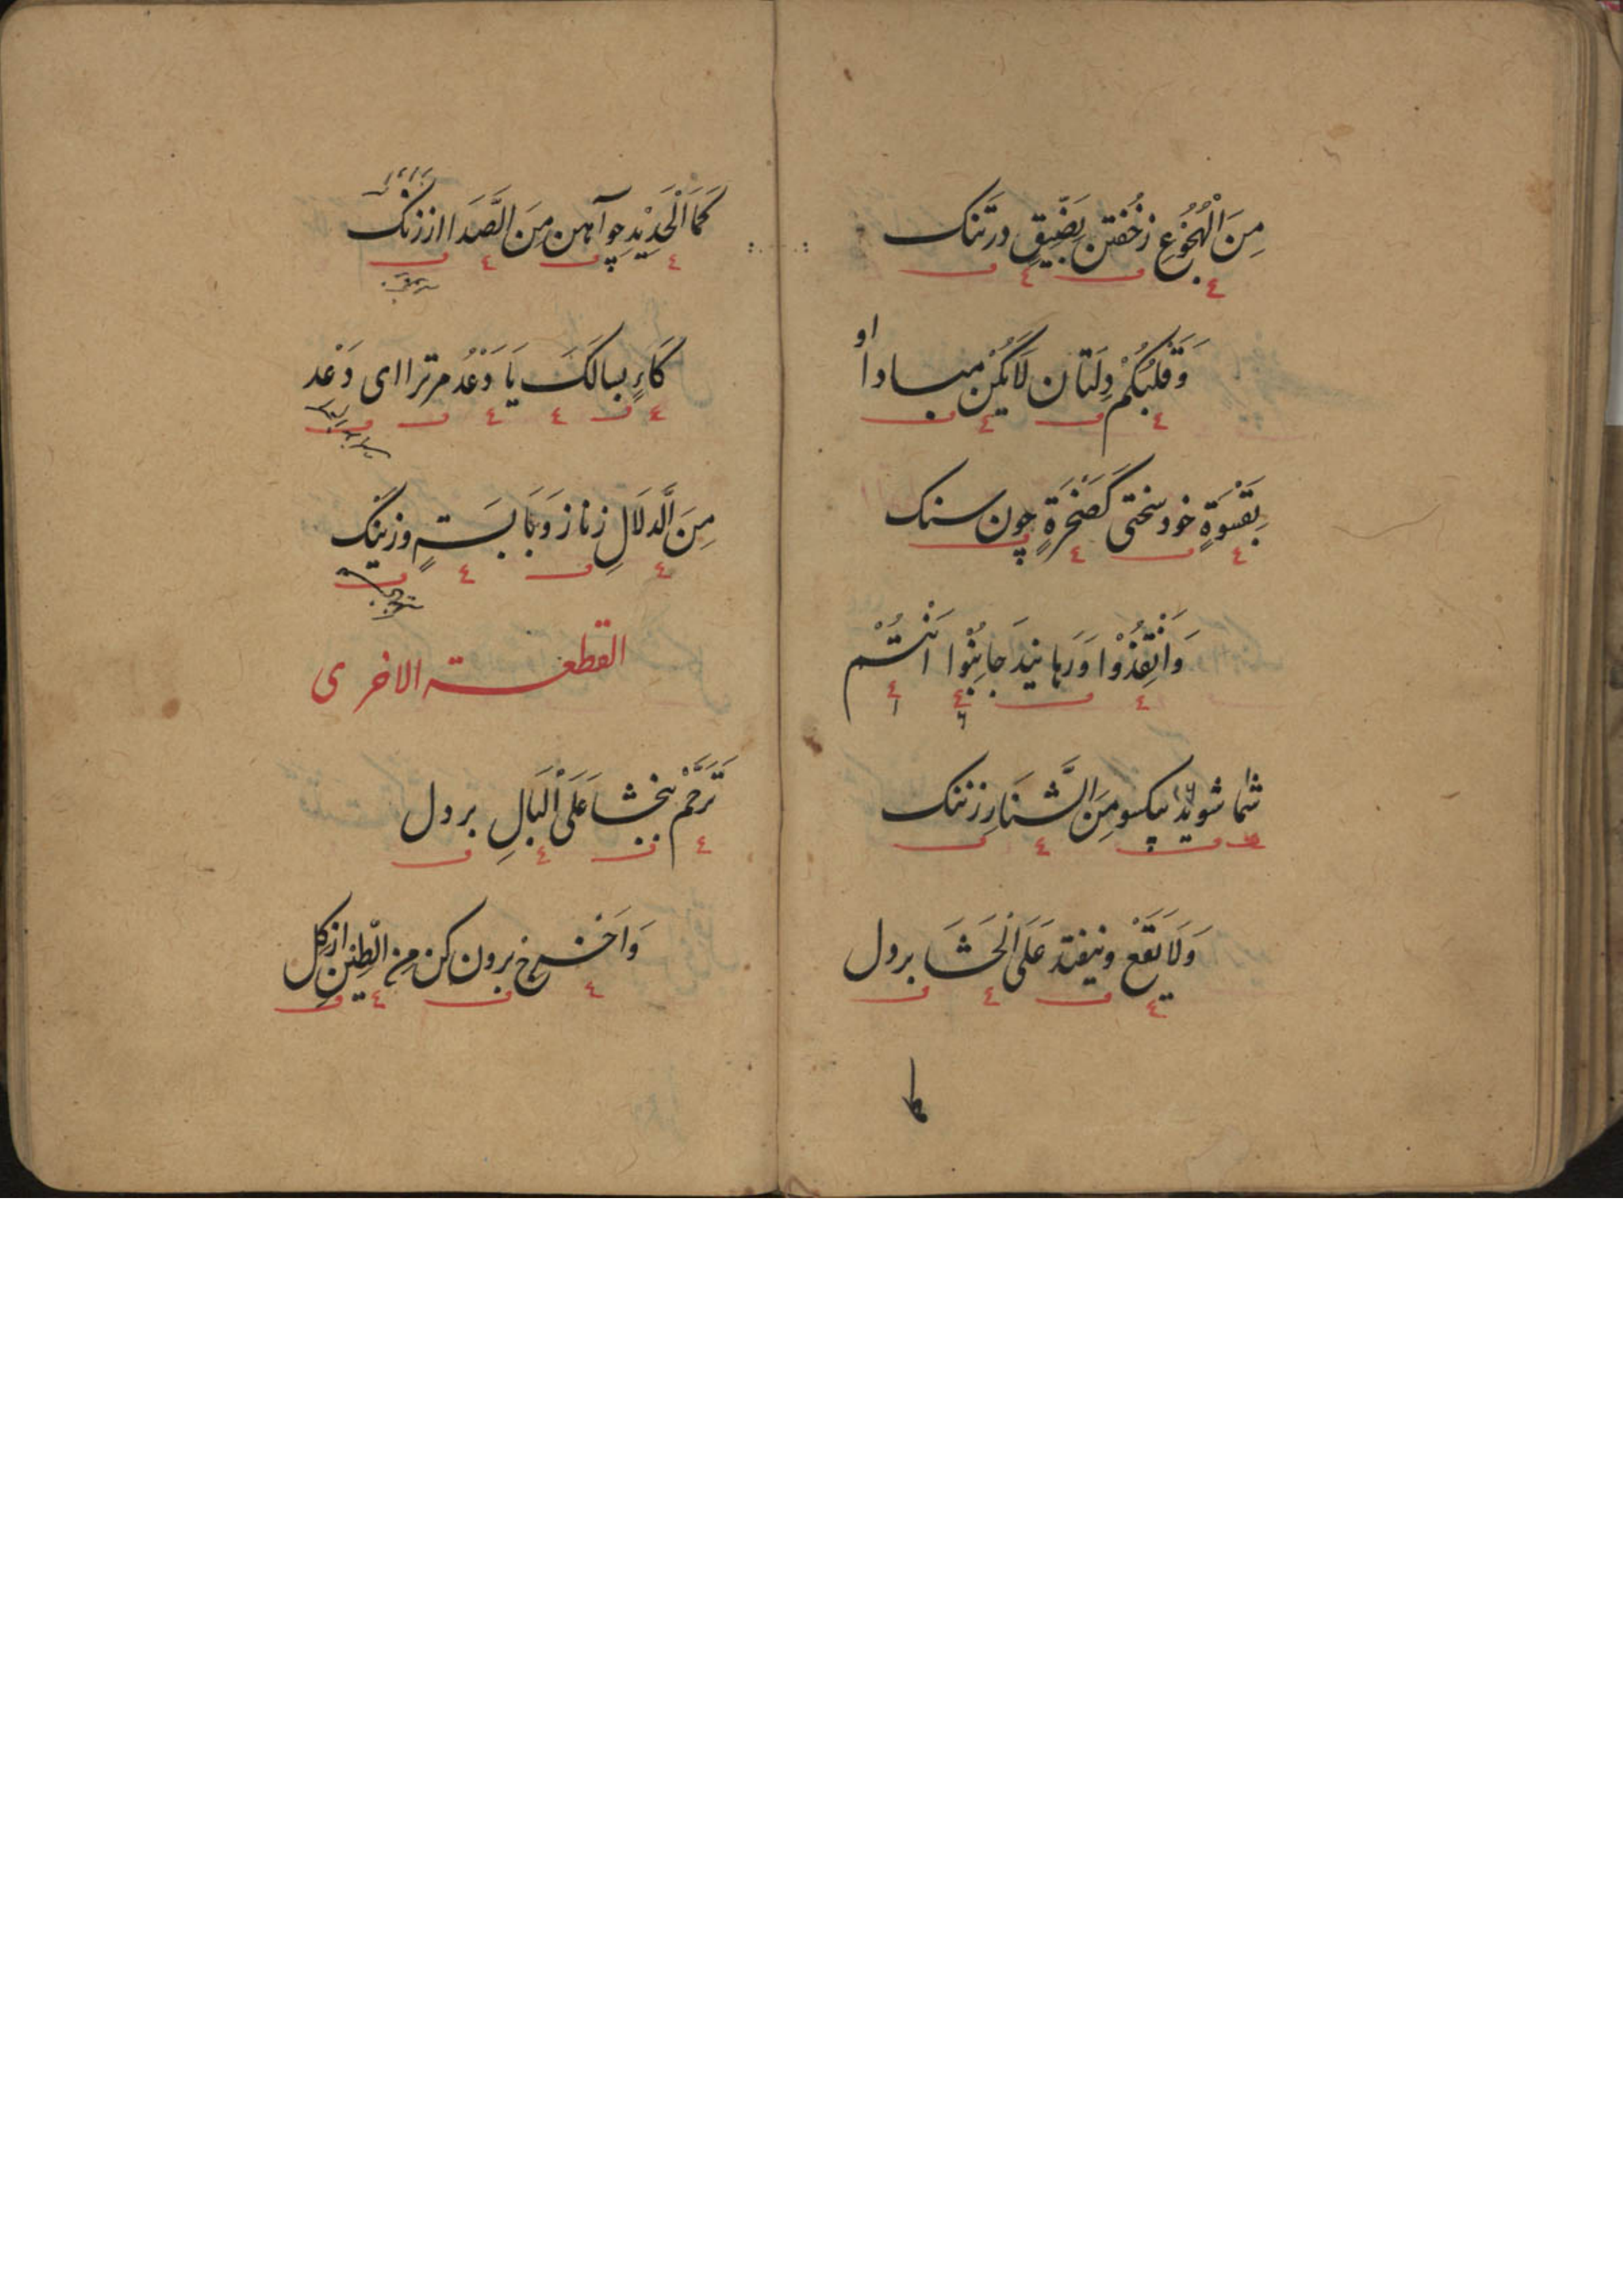 مِنَ الْهُجُوعِ زخُفتن بَضّيِقِ درتَنك
وَقَلْبُكُمْ دِلَتان لَايَكُنْ مبادا او
بِقَسْوَةٍ خود سختى كَصَخْرَةٍ چون سنك
وَانْقِذُوْا وَرَهانيدَ جانِبُوا انْتُمْ
شما شويد يكسو مِنَ الشَّنَارِ زننك
وَلَايَقَعْ ونيفتد عَلَى الْحَشَا بردل
كَمَا الْحَدِيْدِ چوآهن مِنَ الصَّدَا اززنك
كَاءٍ بسا لَكَ يَا دَعْدُ مرترا اى دَعْد
مِنَ الدَّلَالِ زناز وَبَا بَسَةٍ وزينك
القطعة الاخرى
تَرَحَّمْ ببخشا عَلَى الْبَالِ بردل
وَاَخْرِج برون كن مِنِ الطِّيْنِ ازكِل